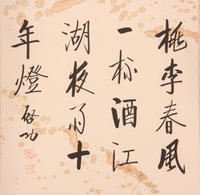 桃李春風
一杯酒江
湖夜雨十
年燈 啟功